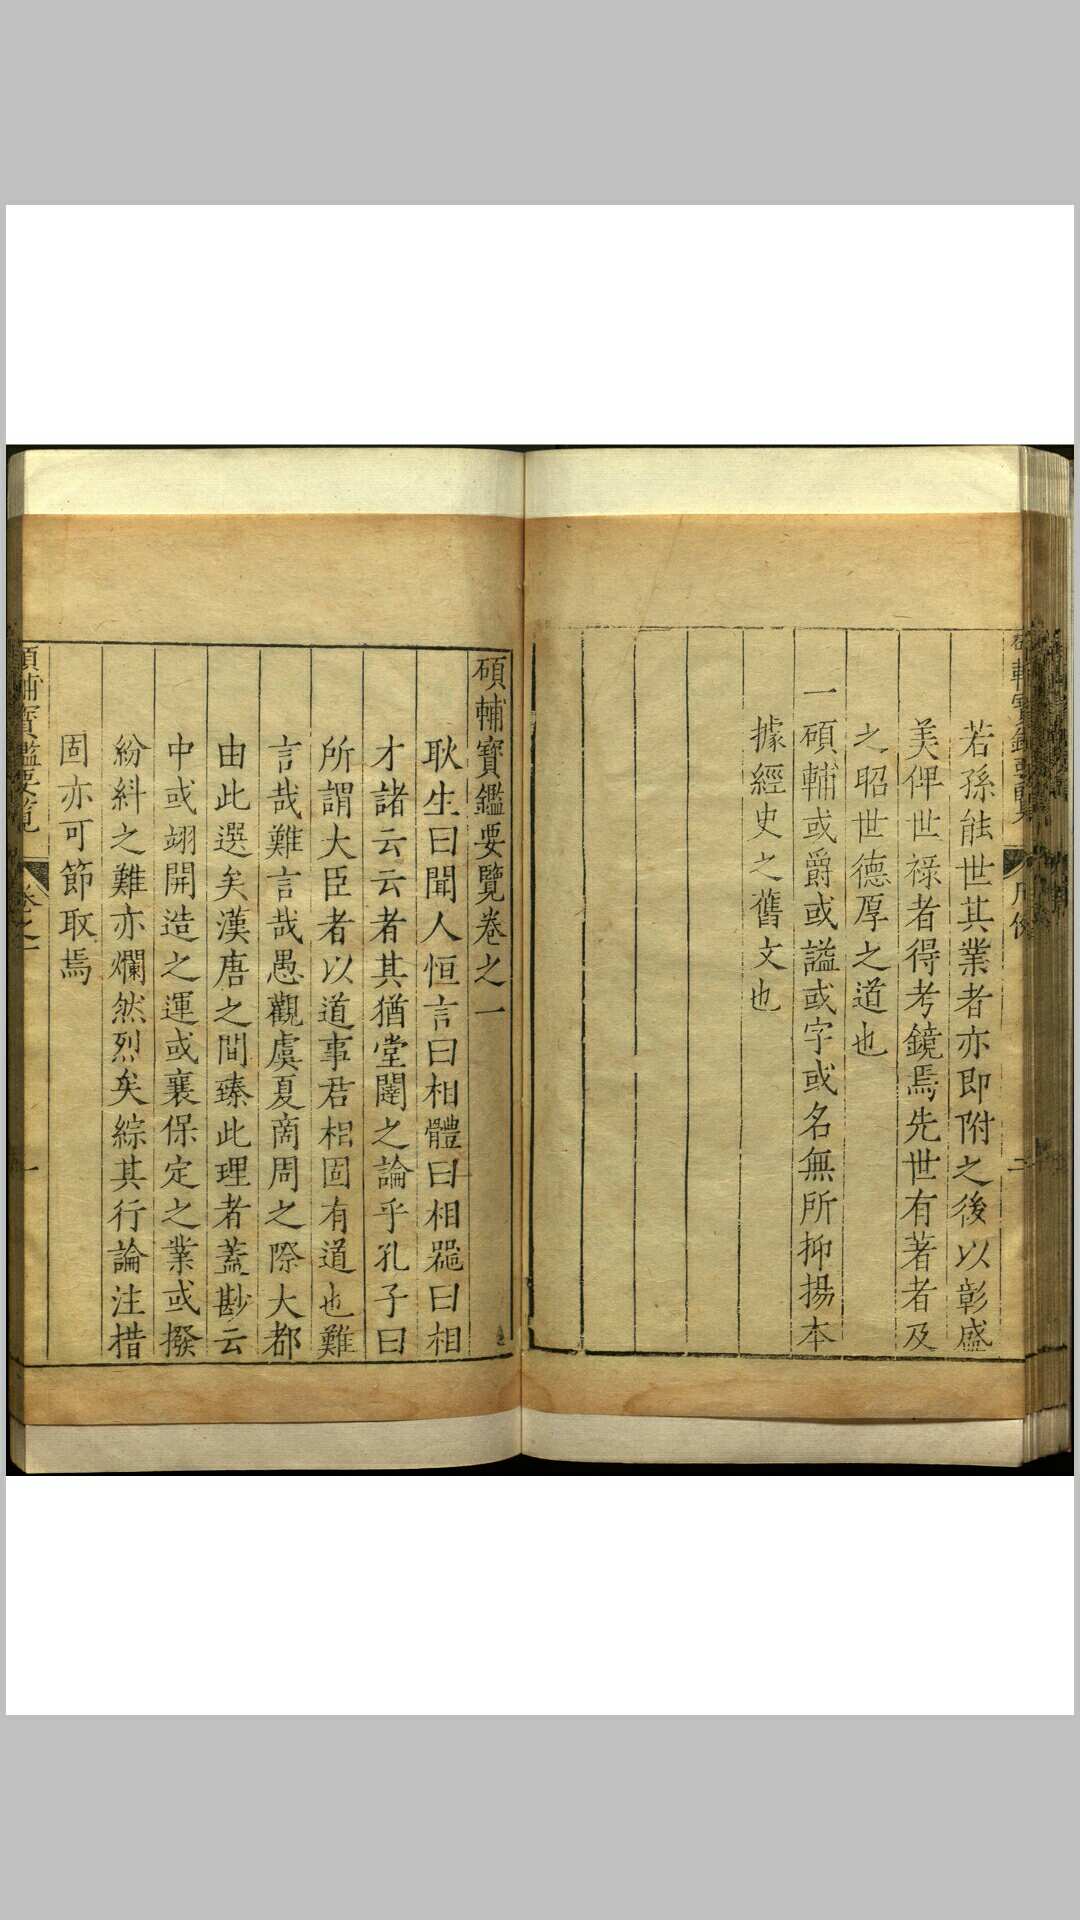 若孫能世其業者亦即附之後以彰盛
美俾世祿者得考鏡焉先世有著者及
之昭世德厚之道也
一碩輔或爵或謚或字或名無所抑揚本
據經史之舊文也
碩輔寶鑑要覽卷之一
耿生曰聞人恒言曰相體曰相噐曰相
才諸云云者其猶堂闥之論乎孔子曰
所謂大臣者以道事君相固有道也難
言哉難言哉愚觀虞夏商周之際大都
由此選矣漢唐之間臻此理者蓋尠云
中或翊開造之運或襄保定之業或撥
紛糾之難亦爛然烈矣綜其行論注措
固亦可節取焉
碩輔寶鑑要覽 卷之一 一